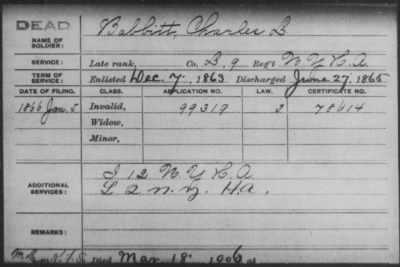 DEAD
NAME OF SOLDIER: Babbitt, Charles B.
SERVICE: Late rank, Co. L, 9 Reg't N.Y.H.A.
TERM OF SERVICE: Enlisted Dec. 7, 1863 Discharged June 27, 1865
DATE OF FILING. CLASS. APPLICATION NO. LAW. CERTIFICATE NO.
1866 Jan. 5 Invalid, 99319 3 78614
Widow,
Minor,
ADDITIONAL SERVICES: I 12 N.Y.C.A.
L 2 N.Y. H.A.
REMARKS:
Died Mar 18 1906 at